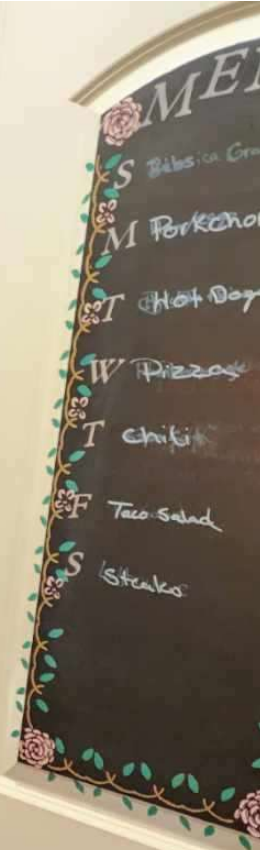 MEN
S
M Porkchop
T Hot Dogs
W Pizza
T Chili
F Taco Salad
S Steaks